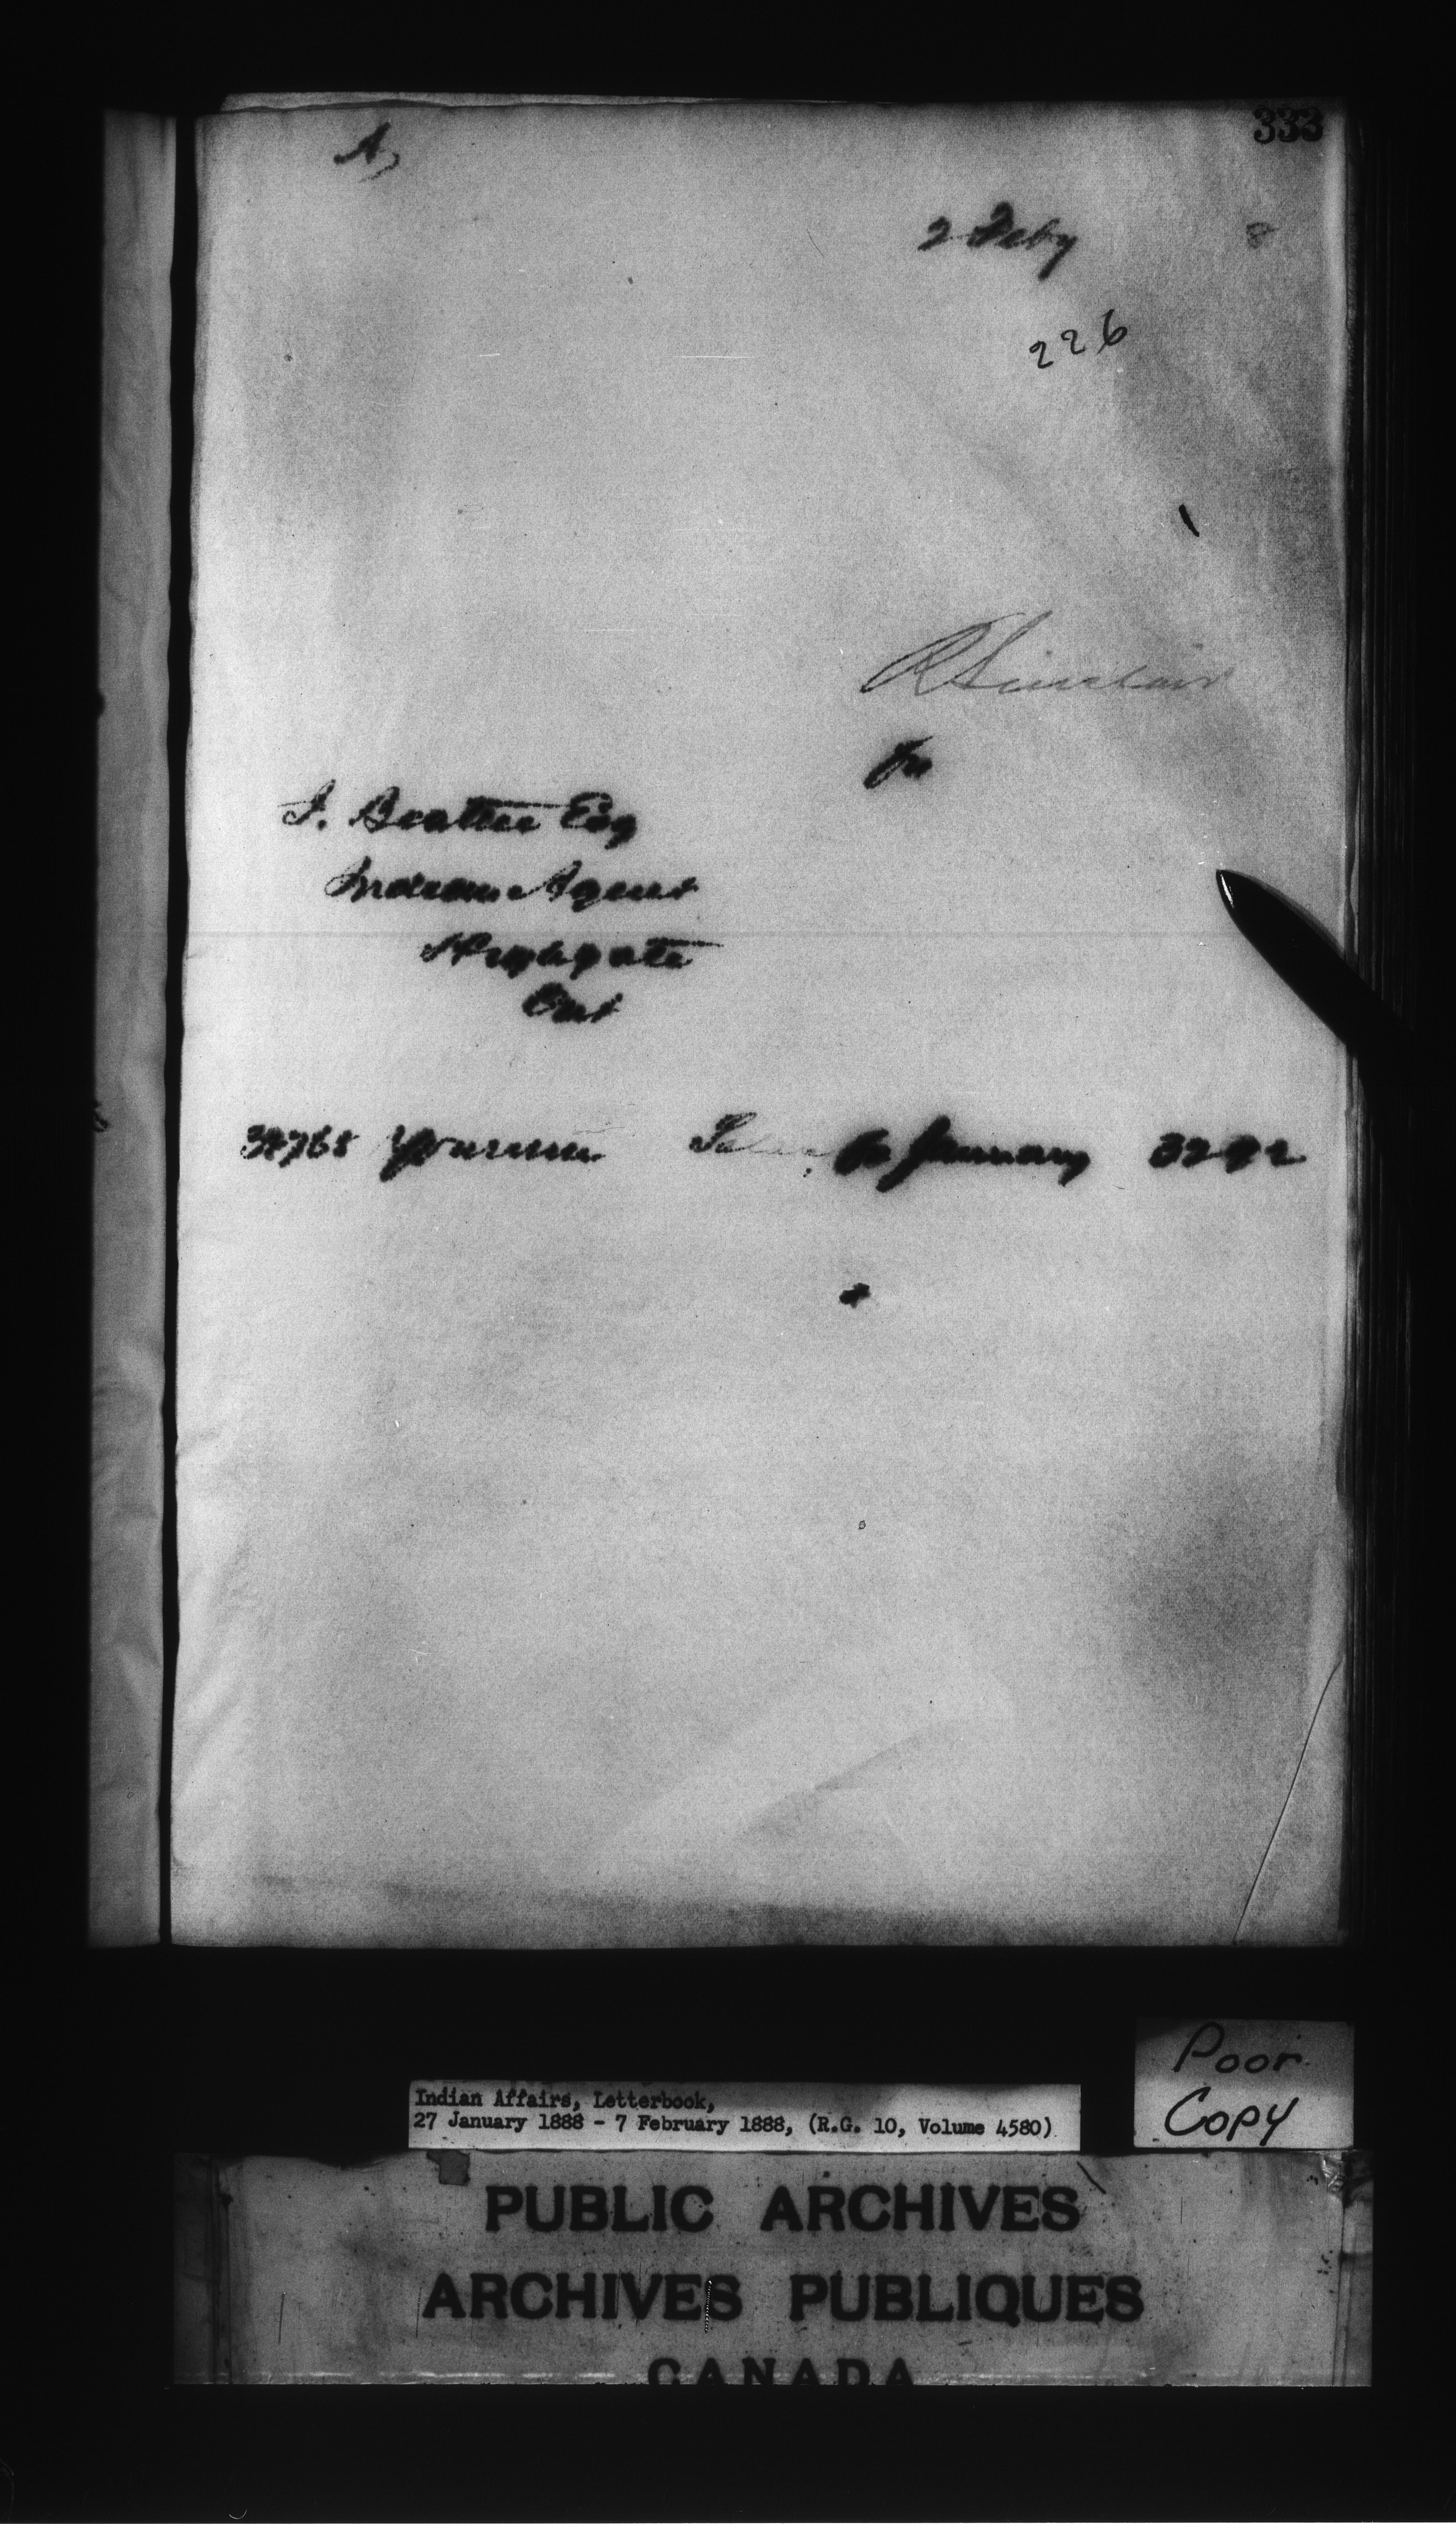 333
A,
2 Feby 8
226
R Sinclair
for
J. Beattie Esq
Indian Agent
Highgate
Ont
for January 32 92
Poor
Copy
Indian Affairs, Letterbook,
27 January 1888 - 7 February 1888, (R.G. 10, Volume 4580)
PUBLIC ARCHIVES
ARCHIVES PUBLIQUES
CANADA